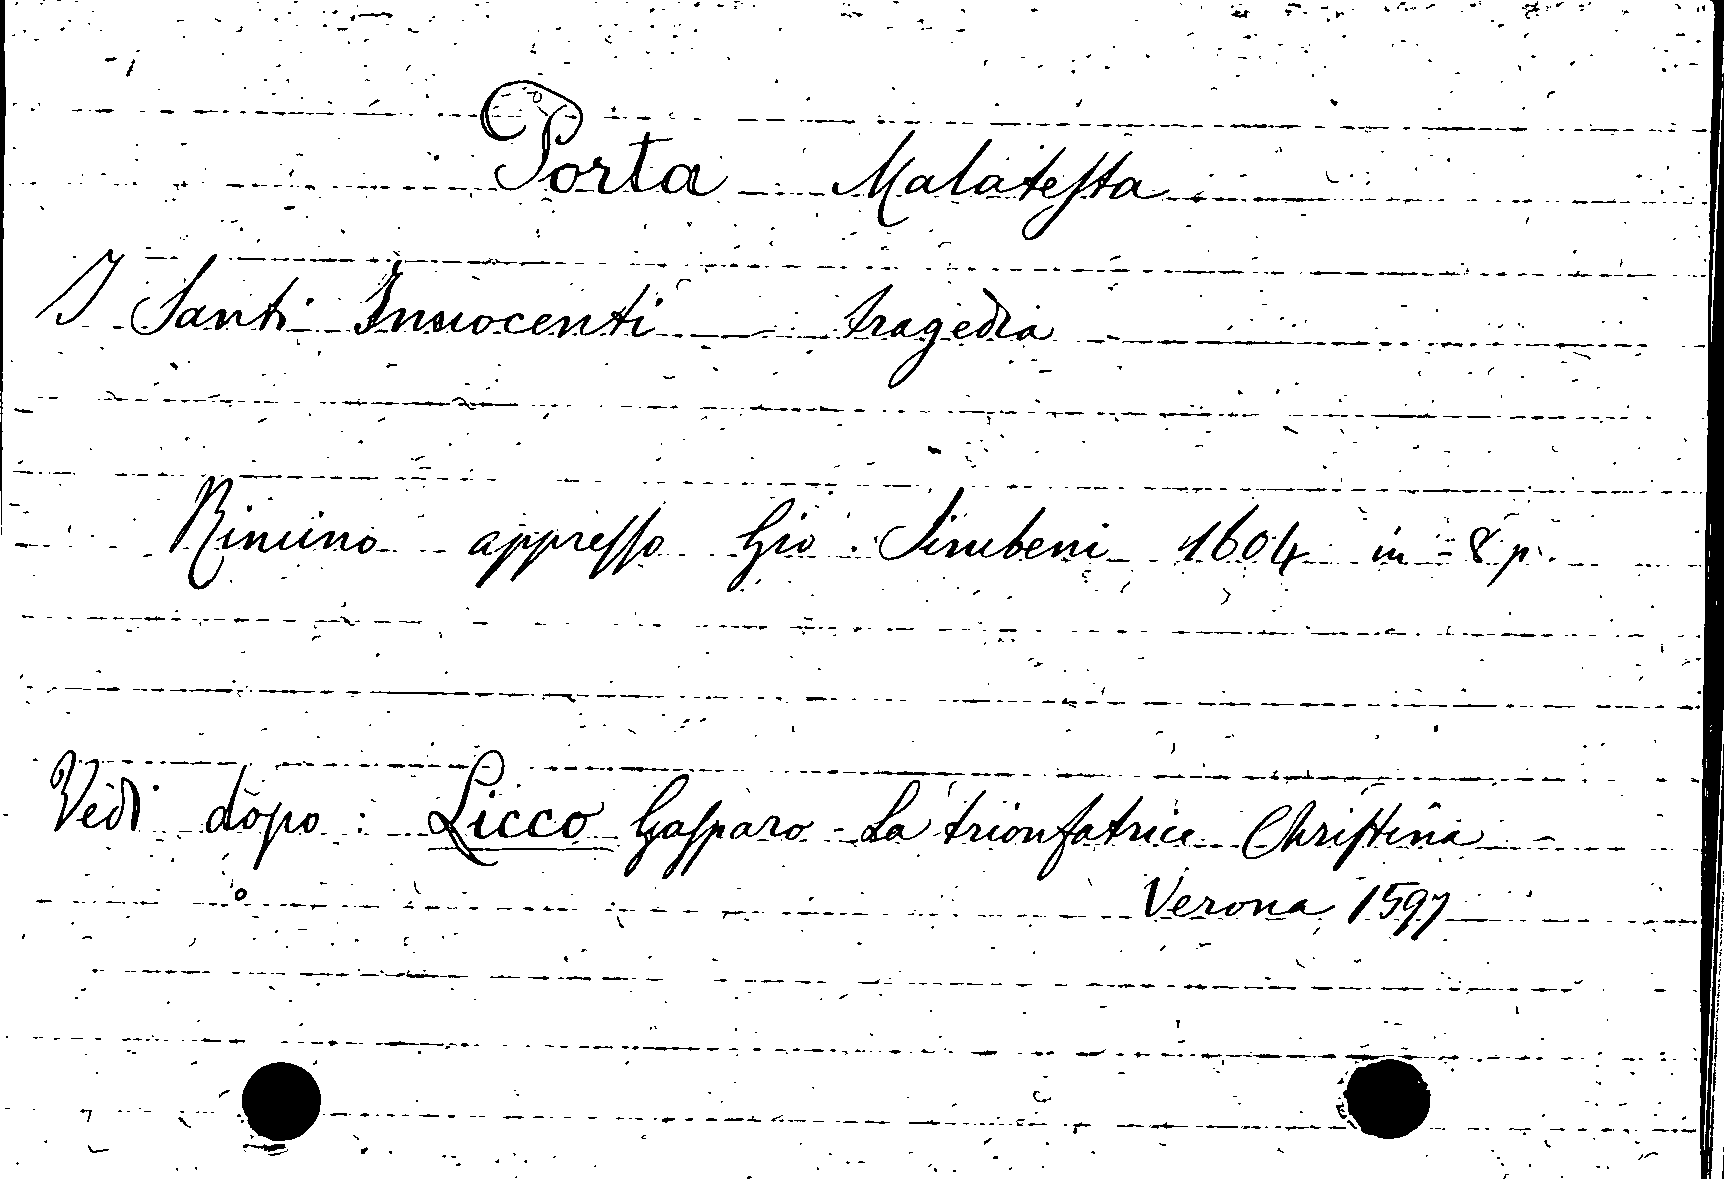 Porta Malatesta
I Santi Innocenti tragedia
Rimino appresso Gio. Simbeni 1604 in-8 p.
Vedi dopo: Licco Gasparo - La trionfatrice Christina -
Verona 1597